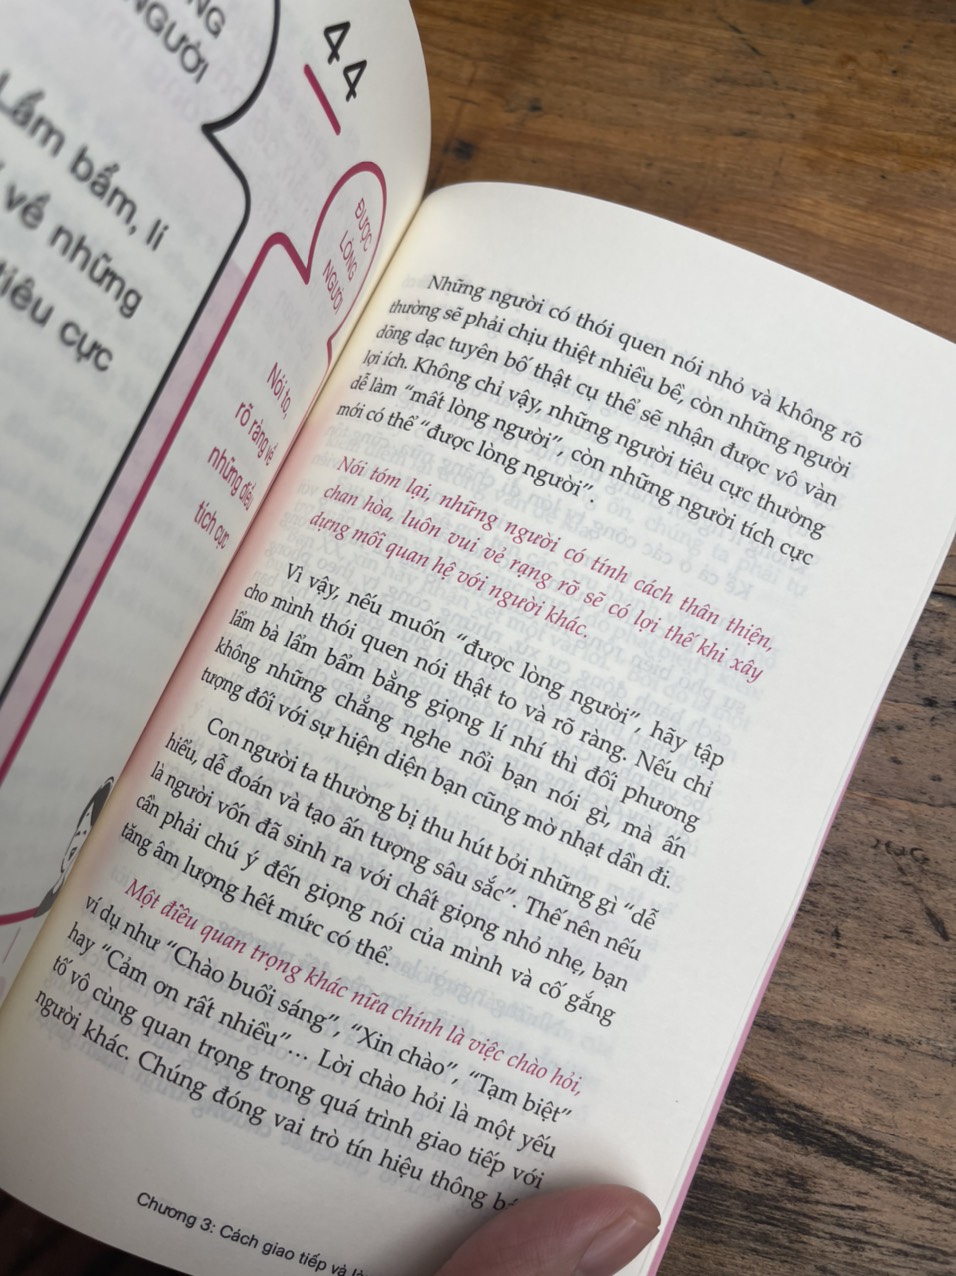 NG
NGƯỜI
Lẩm bẩm, lí
về những
tiêu cực
44
ĐƯỢC
LÒNG
NGƯỜI
Nói to,
rõ ràng về
những điều
tích cực
Những người có thói quen nói nhỏ và không rõ
thường sẽ phải chịu thiệt nhiều bề, còn những người
dõng dạc tuyên bố thật cụ thể sẽ nhận được vô vàn
lợi ích. Không chỉ vậy, những người tiêu cực thường
dễ làm “mất lòng người”, còn những người tích cực
mới có thể “được lòng người”.
Nói tóm lại, những người có tính cách thân thiện,
chan hòa, luôn vui vẻ rạng rỡ sẽ có lợi thế khi xây
dựng mối quan hệ với người khác.
Vì vậy, nếu muốn “được lòng người”, hãy tập
cho mình thói quen nói thật to và rõ ràng. Nếu chỉ
lẩm bà lẩm bẩm bằng giọng lí nhí thì đối phương
không những chẳng nghe nổi bạn nói gì, mà ấn
tượng đối với sự hiện diện bạn cũng mờ nhạt dần đi.
Con người ta thường bị thu hút bởi những gì “dễ
hiểu, dễ đoán và tạo ấn tượng sâu sắc”. Thế nên nếu
là người vốn đã sinh ra với chất giọng nhỏ nhẹ, bạn
cần phải chú ý đến giọng nói của mình và cố gắng
tăng âm lượng hết mức có thể.
Một điều quan trọng khác nữa chính là việc chào hỏi,
ví dụ như “Chào buổi sáng”, “Xin chào”, “Tạm biệt”
hay “Cảm ơn rất nhiều”... Lời chào hỏi là một yếu
tố vô cùng quan trọng trong quá trình giao tiếp với
người khác. Chúng đóng vai trò tín hiệu thông
Chương 3: Cách giao tiếp và